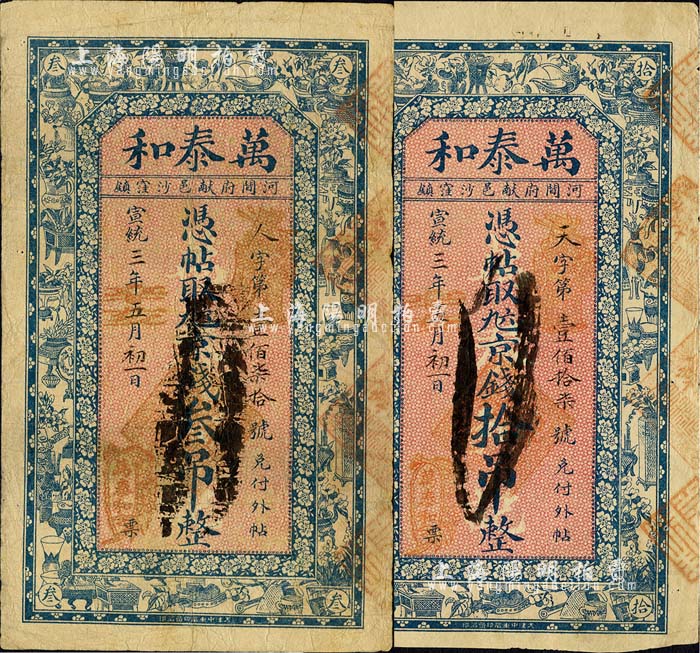 上海陽明拍賣
叁
叁
萬泰和
河間府獻邑沙窪鎮
人字第 佰柒拾號兌付外帖
憑帖取 京錢叁吊整
宣統三年五月初一日
票
叁
叁
上海陽明拍賣
www.yangmingauction.com
拾
萬泰和
河間府獻邑沙窪鎮
天字第壹佰拾柒號兌付外帖
憑帖取 京錢拾吊整
宣統三年 月初一日
票
拾
上海陽明拍賣